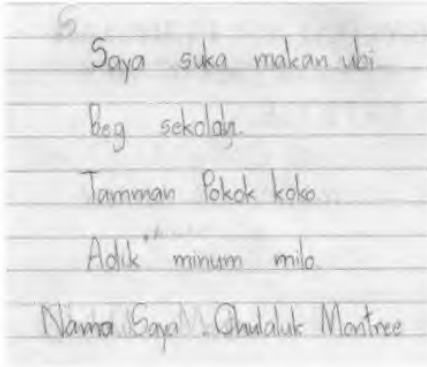 S
Saya suka makan ubi
Beg sekolah.
Tamman Pokok koko
Adik minum milo
Nama Saya Chulaluk Montree